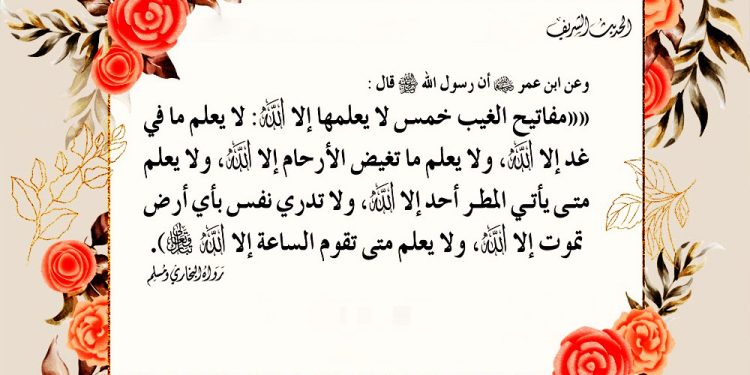 الحديث الشريف
وعن ابن عمر ﵁ أن رسول الله ﷺ قال :
((((مفاتيح الغيب خمس لا يعلمها إلا ﷲ: لا يعلم ما في
غد إلا ﷲ، ولا يعلم ما تغيض الأرحام إلا ﷲ، ولا يعلم
متى يأتي المطر أحد إلا ﷲ، ولا تدري نفس بأي أرض
تموت إلا ﷲ، ولا يعلم متى تقوم الساعة إلا ﷲ).
رواه البخاري ومسلم